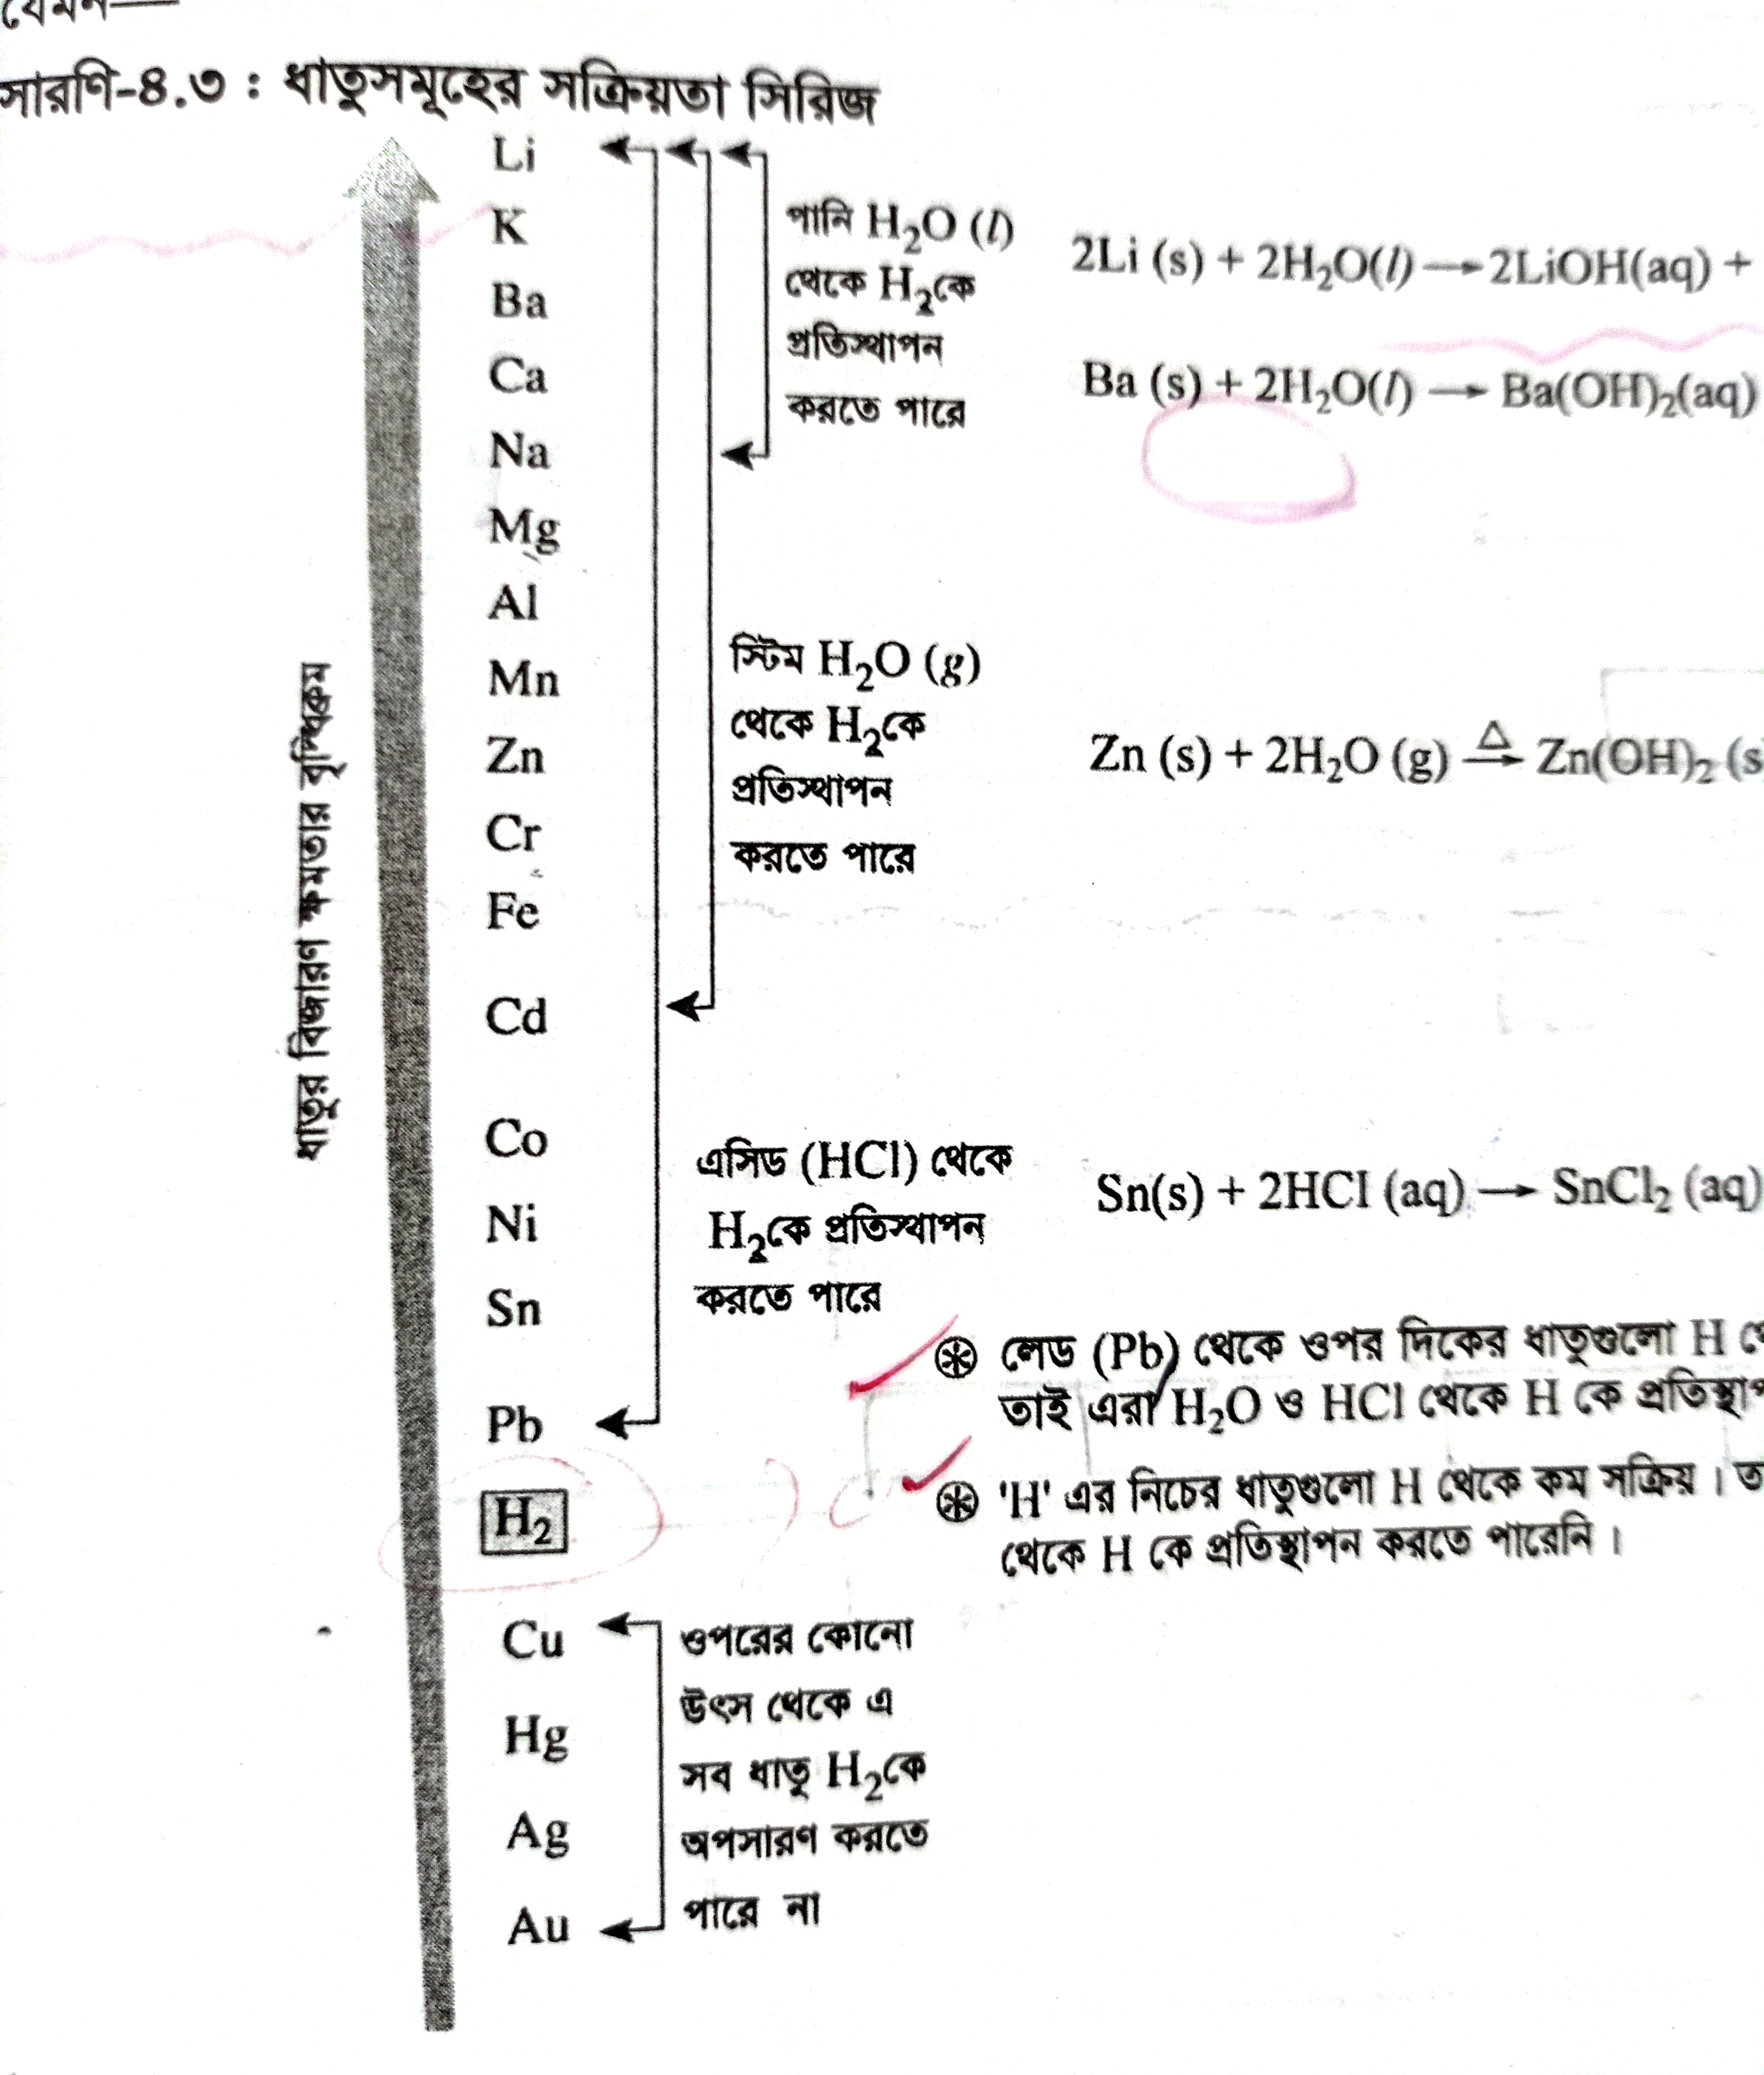 যেমন—
সারণি-৪.৩ : ধাতুসমূহের সক্রিয়তা সিরিজ
ধাতুর বিজারণ ক্ষমতার বৃদ্ধিক্রম
Li
K
Ba
Ca
Na
Mg
Al
Mn
Zn
Cr
Fe
Cd
Co
Ni
Sn
Pb
H₂
Cu
Hg
Ag
Au
পানি H₂O (l)
থেকে H₂কে
প্রতিস্থাপন
করতে পারে
2Li (s) + 2H₂O(l) → 2LiOH(aq) +
Ba (s) + 2H₂O(l) → Ba(OH)₂(aq)
স্টিম H₂O (g)
থেকে H₂কে
প্রতিস্থাপন
করতে পারে
Zn (s) + 2H₂O (g) —Δ→ Zn(OH)₂ (s
এসিড (HCl) থেকে
H₂কে প্রতিস্থাপন
করতে পারে
Sn(s) + 2HCl (aq) → SnCl₂ (aq)
⊛ লেড (Pb) থেকে ওপর দিকের ধাতুগুলো H
তাই এরা H₂O ও HCl থেকে H কে
⊛ 'H' এর নিচের ধাতুগুলো H থেকে কম সক্রিয় ।
থেকে H কে প্রতিস্থাপন করতে পারেনি ।
ওপরের কোনো
উৎস থেকে এ
সব ধাতু H₂কে
অপসারণ করতে
পারে না